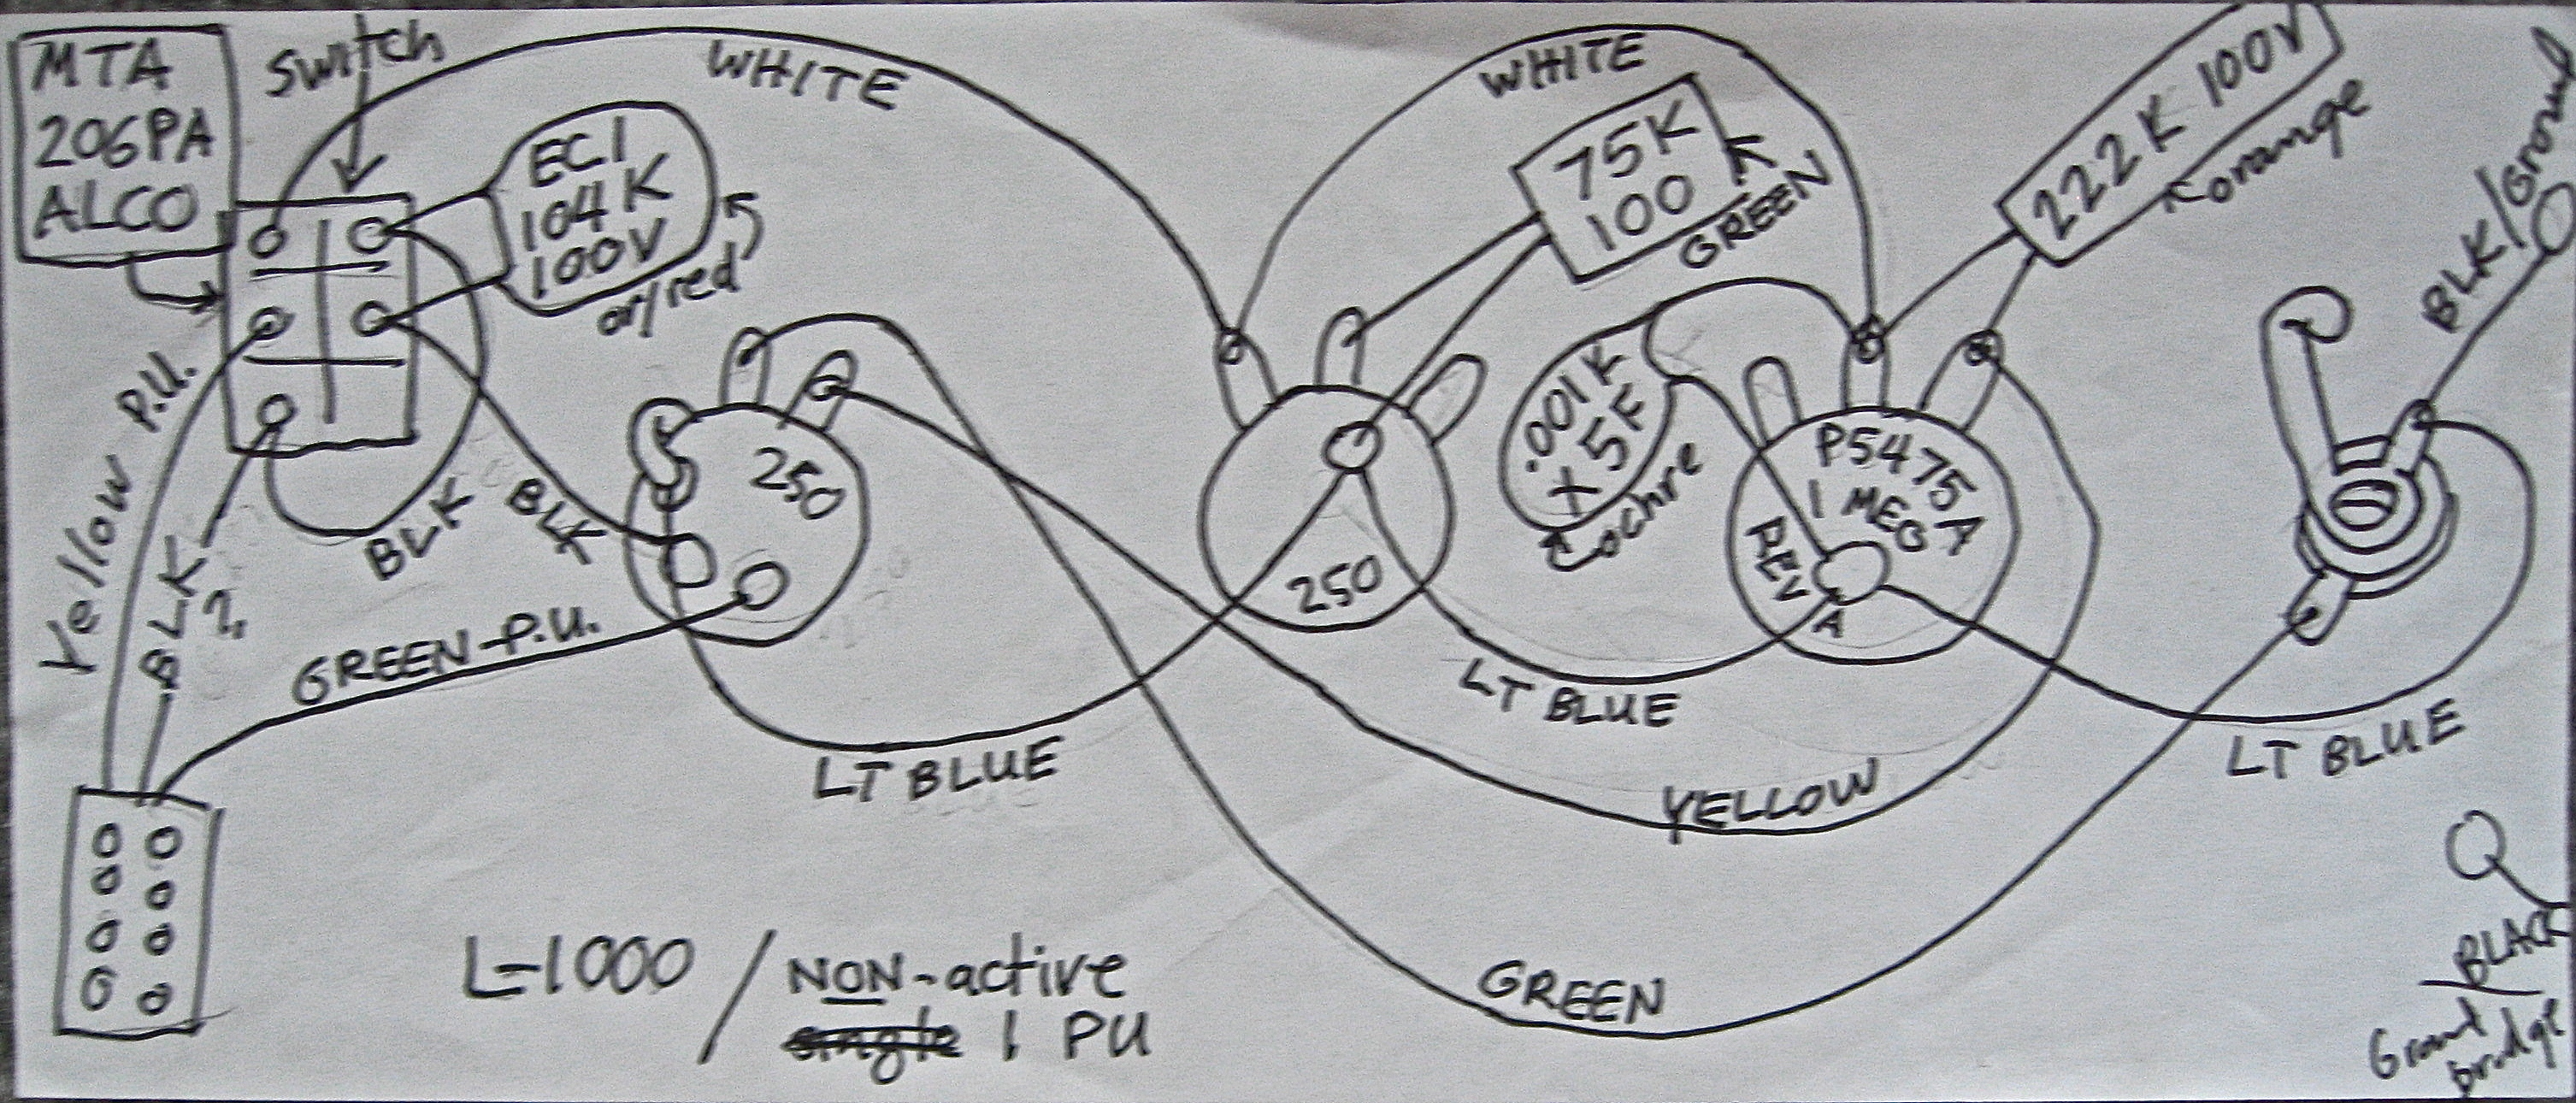 MTA
206PA
ALCO
switch
WHITE
ECI
104K
100V
or/red
Yellow P.U.
BLK
?
BLK
BLK
GREEN-P.U.
250
LT BLUE
WHITE
75K
100
GREEN
250
.001K
X5F
ochre
P5475
1 MEG A
REV
A
222K 100V
orange
BLK/Ground
LT BLUE
LT BLUE
YELLOW
GREEN
BLACK
Ground
bridge
L-1000 / NON-active
single 1 PU